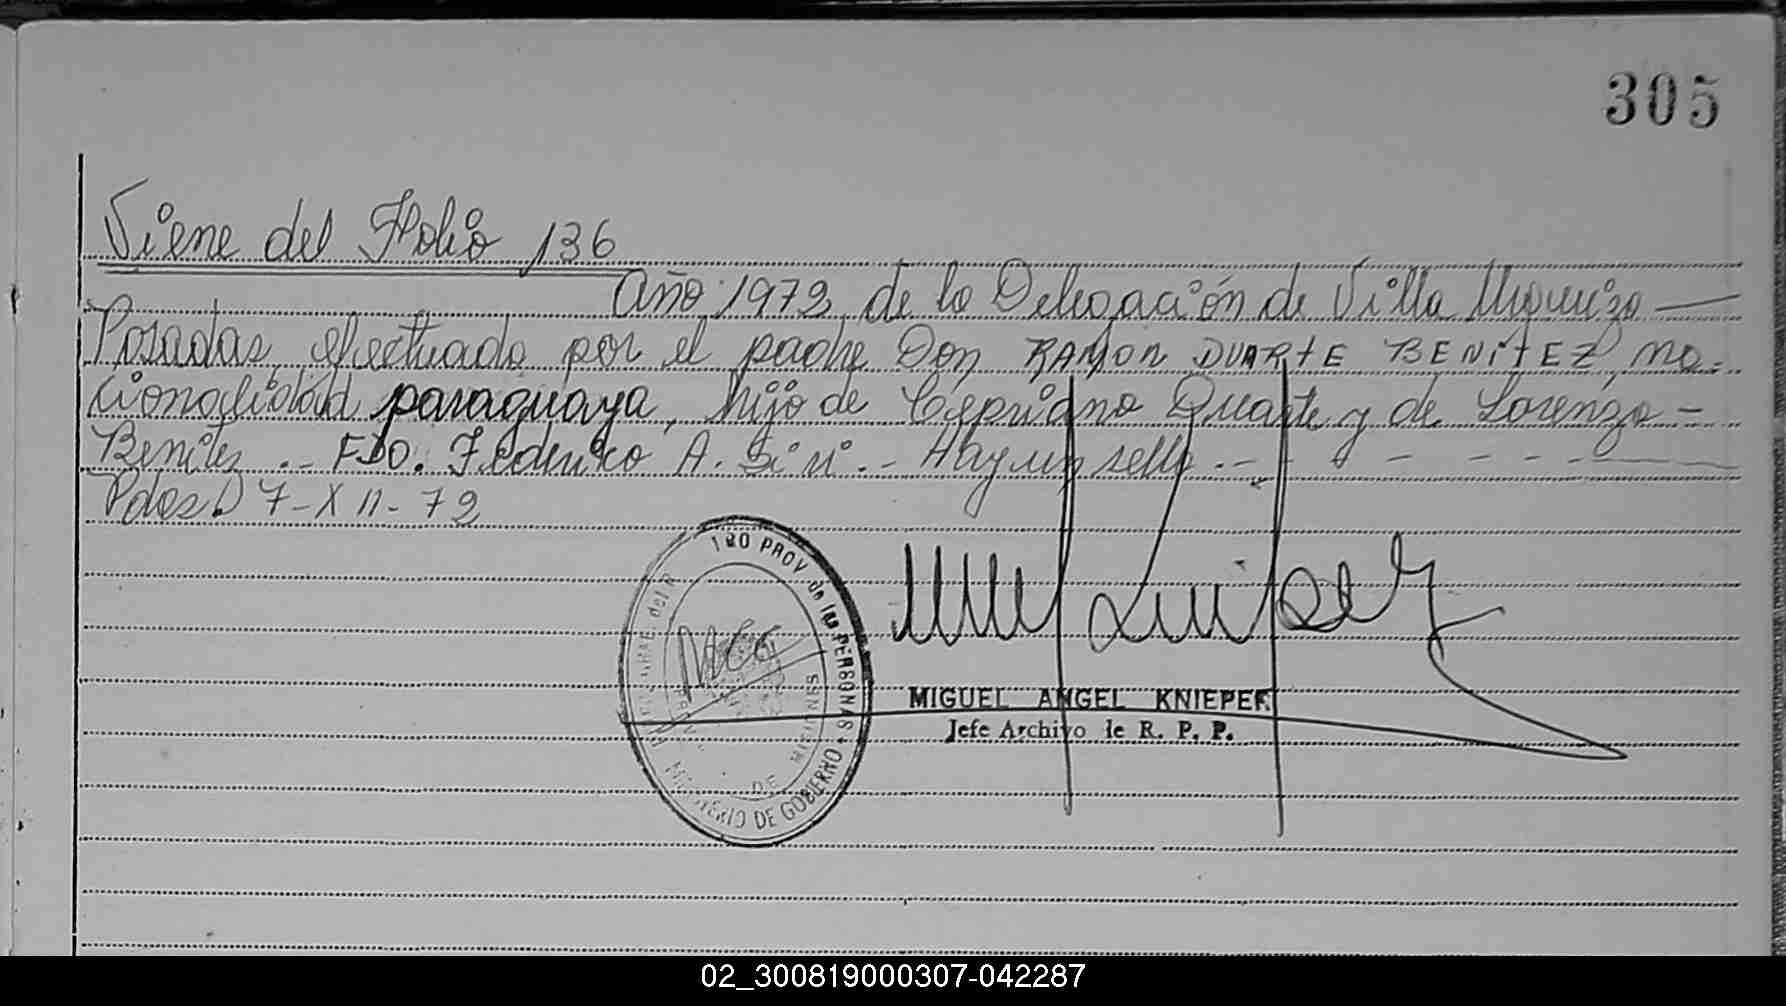 305
Viene del Folio 136
Año 1972, de la Delegación de Villa Urquiza —
Posadas, efectuado por el padre Don RAMON DUARTE BENITEZ, na-
cionalidad paraguaya, hijo de Cipriano Duarte y de Lorenza -
Benitez.- FDO. Federico A. Hay un sello.- - - - - -
Pdas. 7-XII-72
PROV de las PERSONAS
MINISTERIO DE GOBIERNO
DE MISIONES
MIGUEL ANGEL KNIEPER
Jefe Archivo de R. P. P.
02_300819000307-042287